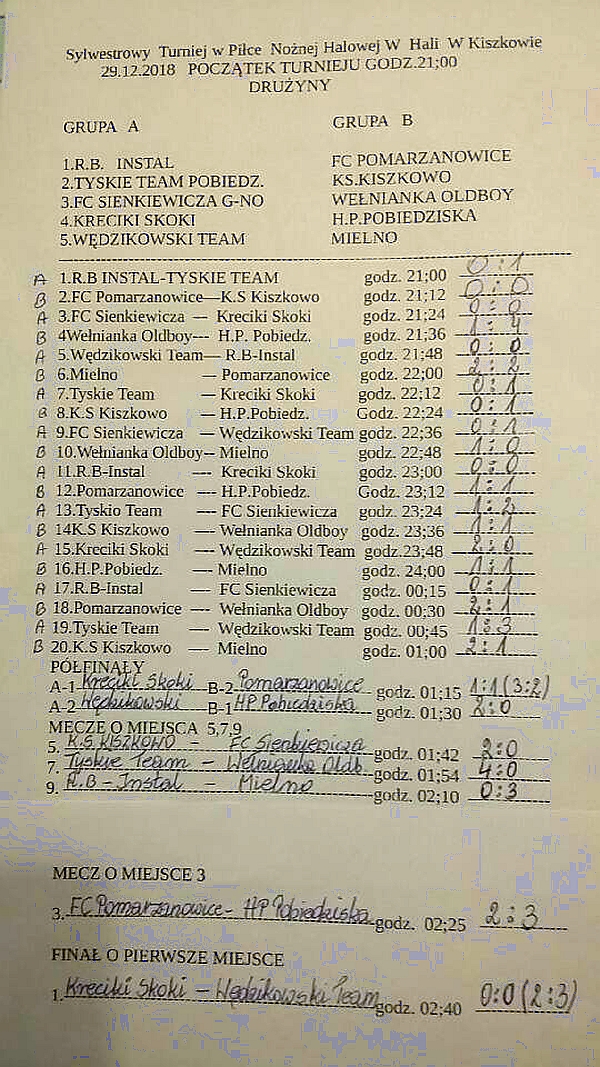 Sylwestrowy Turniej w Piłce Nożnej Halowej W Hali W Kiszkowie
29.12.2018 POCZĄTEK TURNIEJU GODZ.21;00
DRUŻYNY
GRUPA A GRUPA B
1.R.B. INSTAL FC POMARZANOWICE
2.TYSKIE TEAM POBIEDZ. KS.KISZKOWO
3.FC SIENKIEWICZA G-NO WEŁNIANKA OLDBOY
4.KRECIKI SKOKI H.P.POBIEDZISKA
5.WĘDZIKOWSKI TEAM MIELNO
A 1.R.B INSTAL-TYSKIE TEAM godz. 21;00 0:1
B 2.FC Pomarzanowice—K.S Kiszkowo godz. 21;12 0:0
A 3.FC Sienkiewicza — Kreciki Skoki godz. 21;24 0:0
B 4Wełnianka Oldboy--- H.P. Pobiedz. godz. 21;36 1:4
A 5.Wędzikowski Team— R.B-Instal godz. 21;48 0:0
B 6.Mielno — Pomarzanowice godz. 22;00 2:2
A 7.Tyskie Team — Kreciki Skoki godz. 22;12 0:1
B 8.K.S Kiszkowo — H.P.Pobiedz. Godz. 22;24 0:1
A 9.FC Sienkiewicza — Wędzikowski Team godz. 22;36 0:1
B 10.Wełnianka Oldboy— Mielno godz. 22;48 1:0
A 11.R.B-Instal — Kreciki Skoki godz. 23;00 0:0
B 12.Pomarzanowice — H.P.Pobiedz. Godz. 23;12 1:1
A 13.Tyskio Team — FC Sienkiewicza godz. 23;24 1:2
B 14K.S Kiszkowo — Wełnianka Oldboy godz. 23;36 1:1
A 15.Kreciki Skoki — Wędzikowski Team godz.23;48 2:0
B 16.H.P.Pobiedz. — Mielno godz. 24;00 1:1
A 17.R.B-Instal — FC Sienkiewicza godz. 00;15 0:1
B 18.Pomarzanowice — Wełnianka Oldboy godz. 00;30 2:1
A 19.Tyskie Team — Wędzikowski Team godz. 00;45 1:3
B 20.K.S Kiszkowo — Mielno godz. 01;00 2:1
PÓŁFINAŁY
A-1 Kreciki Skoki B-2 Pomarzanowice godz. 01;15 1:1(3:2)
A-2 Wędzikowski B-1 HP Pobiedziska godz. 01;30 2:0
MECZE O MIEJSCA 5,7,9
5. K.S KISZKOWO – FC Sienkiewicza godz. 01;42 2:0
7. Tyskie Team – Wełnianka Oldb. godz. 01;54 4:0
9. R.B – Instal – Mielno godz. 02;10 0:3
MECZ O MIEJSCE 3
3. FC Pomarzanowice - HP Pobiedziska godz. 02;25 2:3
FINAŁ O PIERWSZE MIEJSCE
1. Kreciki Skoki – Wędzikowski Team godz. 02;40 0:0(2:3)